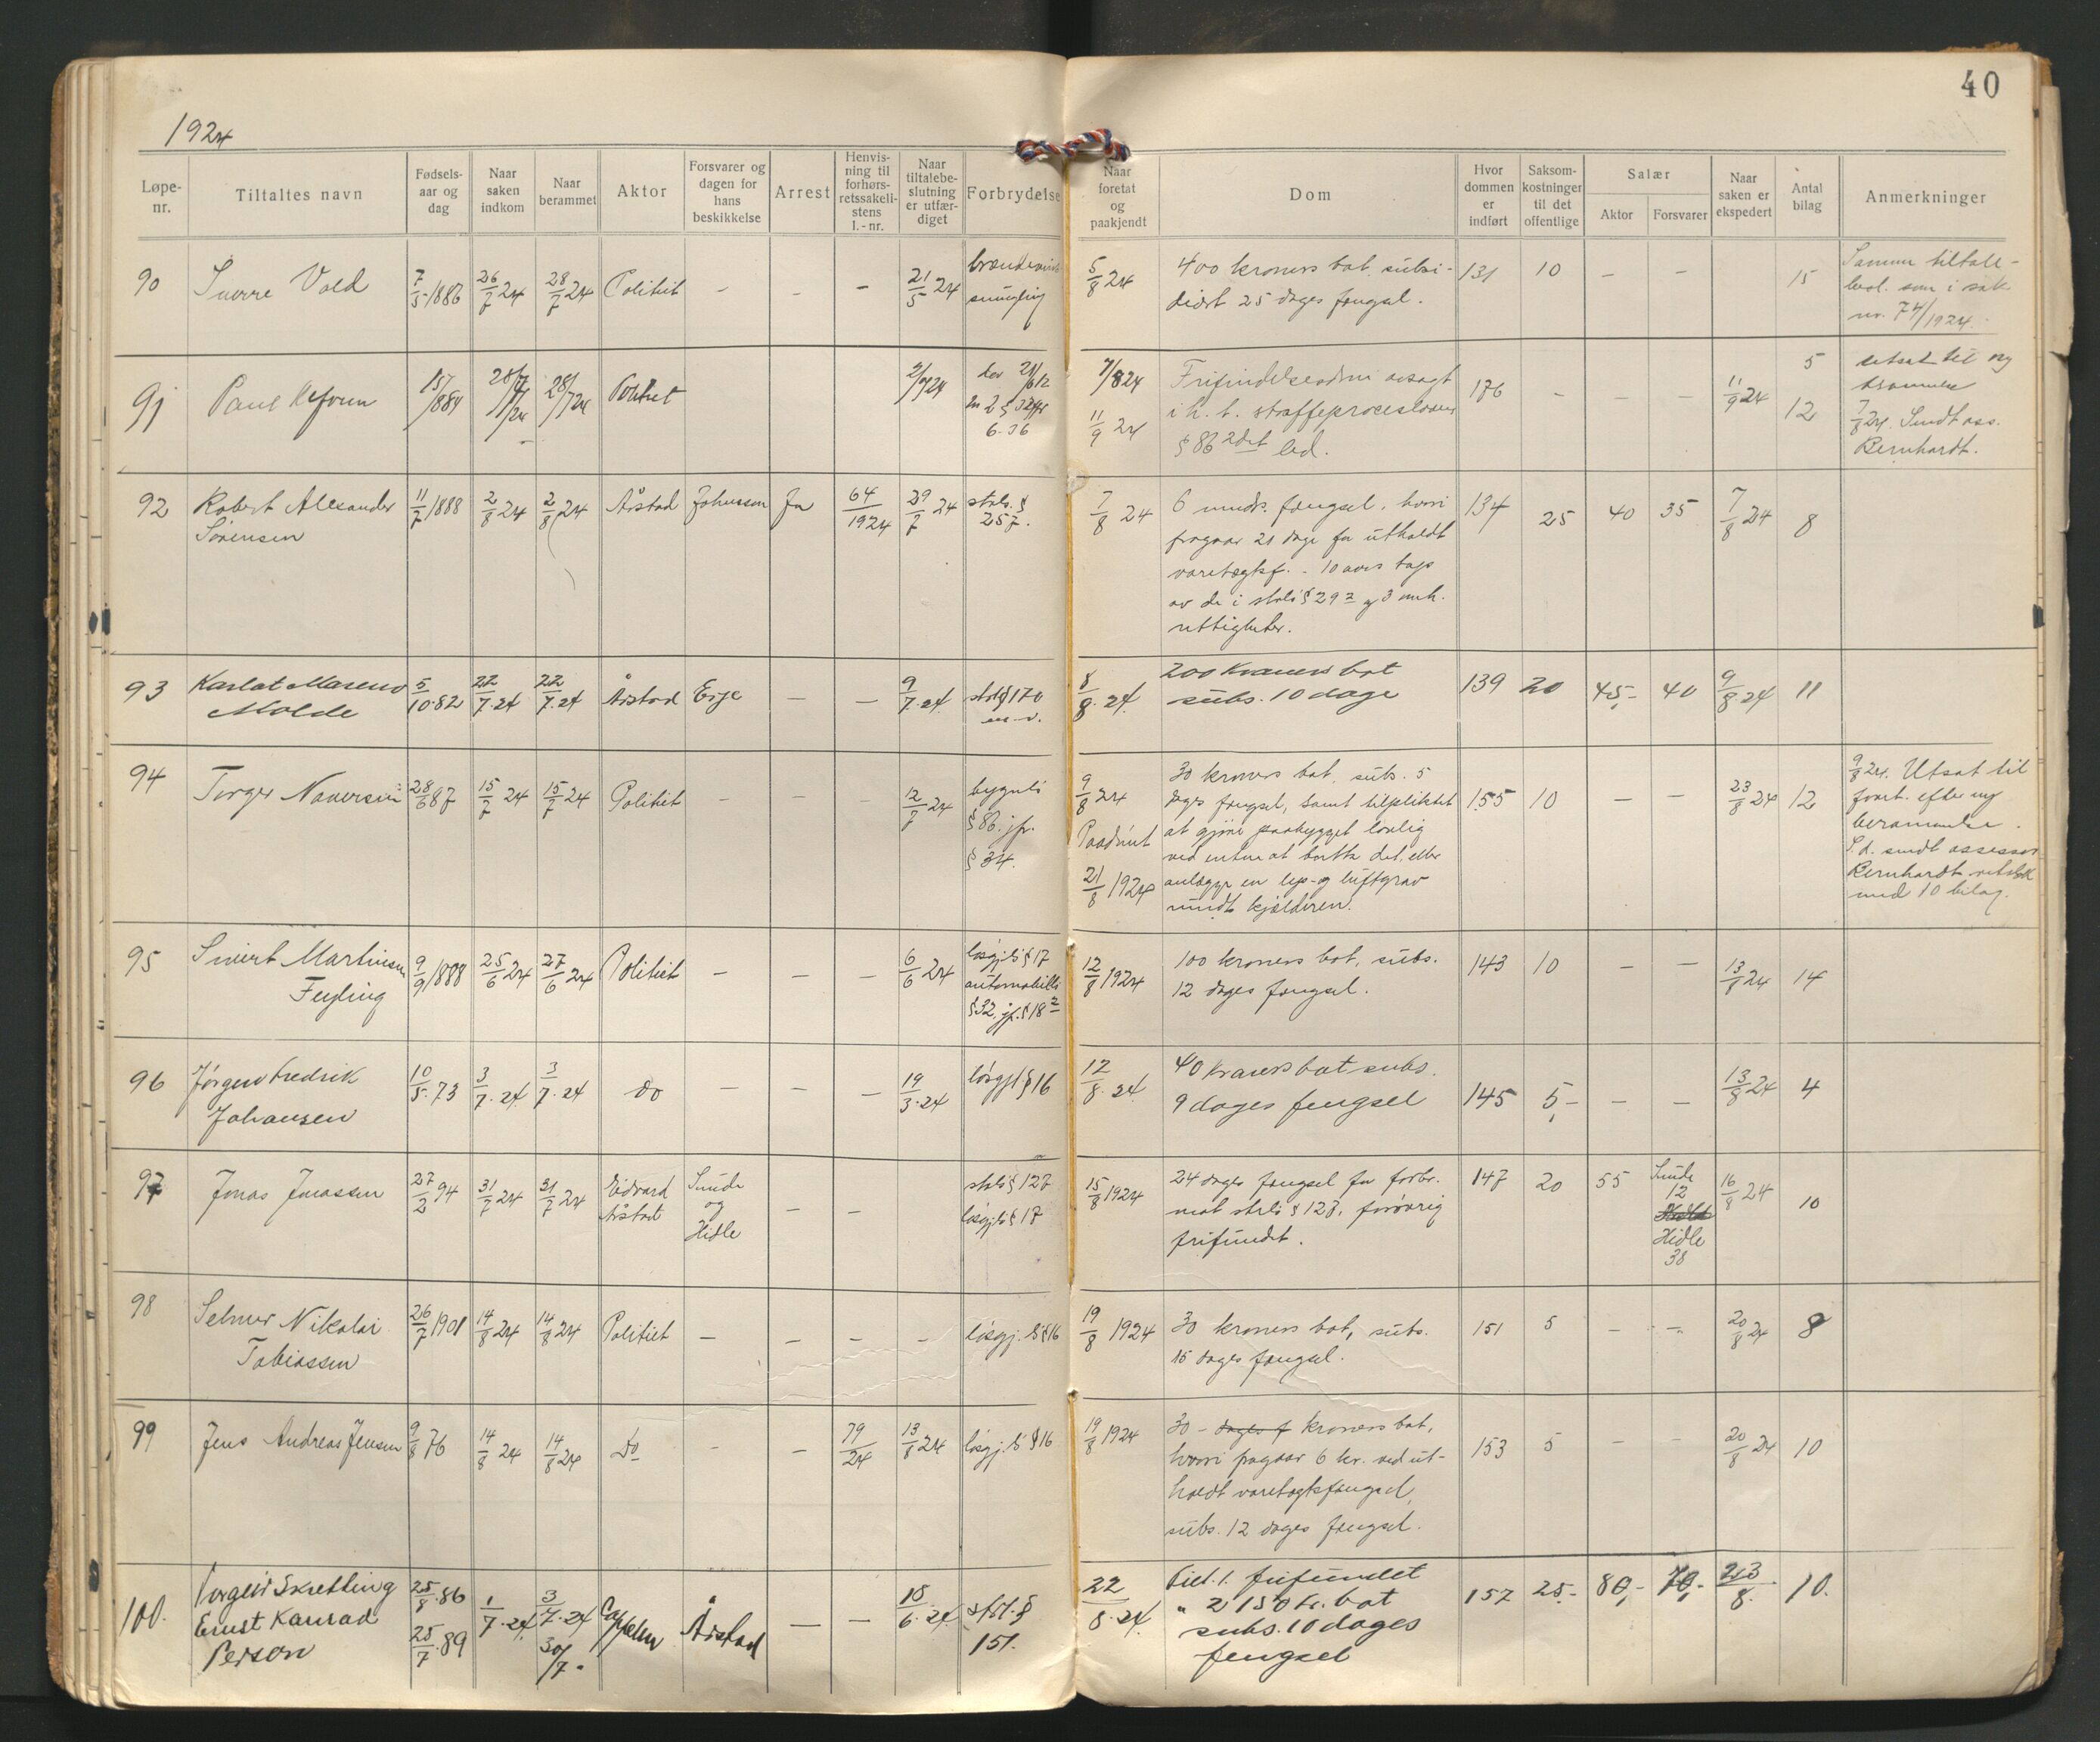 40
1924
Løpe-nr.
Tiltaltes navn
Fødsels-aar og dag
Naar saken indkom
Naar berammet
Aktor
Forsvarer og dagen for hans beskikkelse
Arrest
Henvis-ning til forhørs-retssakeli-stens l.-nr.
Naar tiltalebe-slutning er utfær-diget
Forbrydelse
Naar foretat og paakjendt
Dom
Hvor dommen er indført
Saksom-kostninger til det offentlige
Salær
Aktor
Forsvarer
Naar saken er ekspedert
Antal bilag
Anmerkninger
90 Sverre Vold 7/5 1886 26/7 24 28/7 24 Politiet - - - 21/5 24
5/8 24 400 kroners bot, subsi-
diært 25 dages fængsel.
131 10 - - 15
Samme tiltale-
besl. som i sak
nr. 74/1924.
91 Paul 28/7 24 Politiet 2/7 24
7/8 24
11/9 24
i h. t. straffeprocesloven
§ 86 2det led.
176 - - - 11/9 24 5
12
utsat til ny
berammelse
7/8 24. Sendt ass.
Bernhardt.
92 Robert Alexander
Sørensen
11/7 1888 2/8 24 2/8 24 Årstad Johnsson Ja 64/1924 29/7 24 strls. §
257.
7/8 24 6 mndrs. fængsel, hvori
fragaar 21 dage for utholdt
varetægtsf. -
av de i strls § 29 2 og 3 omh.
rettigheter.
134 25 40 35 7/8 24 8
93
Molde
5/10.82 22/7.24 22/7.24 Årstad Erge - - 9/7.24 strl § 170
8/8.24. 200 kroners bot
subs. 10 dage
139 20 45,- 40 9/8 24 11
94 Torger 28/6 87 15/7 24 15/7 24 Politiet - - - 12/7 24 bygnls
§ 86. jfr.
§ 34.
9/8 24
Paadømt
21/8 1924
30 kroners bot, subs. 5
dages fængsel, samt tilpliktet
at gjøre paabygget lovlig
ved enten at bortta det, eller
anlægge en lys- og luftgrav
rundt kjelderen.
155 10 - - 23/8 24 12
9/8 24. Utsat til
fort. efter ny
berammelse.
S.d. sendt assessor
Bernhardt retsbok
med 10 bilag.
95 Sivert Martinsen
Feyling
9/9 1888 25/6 24 27/6 24 Politiet - - - 6/6 24 løsgj.ls § 17
automobills
§ 32, jf. § 18 2
12/8 1924 100 kroners bot, subs.
12 dages fængsel.
143 10 - - 13/8 24 14
96 Jørgen Fredrik
Johansen
10/5.73 3/7.24. 3/7.24 Do - - - 19/3.24 løsgjl § 16
12/8.24. 40 kroners bot subs.
9 dages fengsel
145 5,- - - 13/8 24 4
97 Jonas Jonassen 27/2 94 31/7 24 31/7 24 Eidvard
Årstad
Sunde
og
Hidle
- - strls § 127
løsgjls § 17
15/8 1924 24 dages fængsel for forbr.
mot strls § 127, forøvrig
frifundet.
147 20 55 Sunde
12
Hidle
38
16/8 24 10
98 Selmer Nikolai
Tobiassen
26/7 1901 14/8 24 14/8 24 Politiet - - - - løsgj. ls § 16
19/8 1924 30 kroners bot, subs.
15 dages fængsel.
151 5 - - 20/8 24 8
99 Jens Andreas Jensen 9/8 76 14/8 24 14/8 24 Do - - 79/24 13/8 24 løsgj. ls § 16
19/8 1924 30 - dages f kroners bot,
hvori fragaar 6 kr. ved ut-
holdt varetægtsfængsel,
subs. 12 dages fængsel.
153 5 - - 20/8 24 10
100. Torgeir Skretting
Ernst Konrad
Person
25/8.86
25/7.89
1/7.24. 3/7.24
30/7.
Cappelen Årstad - - 18/6.24. strl. §
151.
22/8.24. Tilt. 1. frifundet
" 2 150 kr. bot
subs. 10 dages
fengsel
157 25,- 80,- 70,- 23/8. 10.